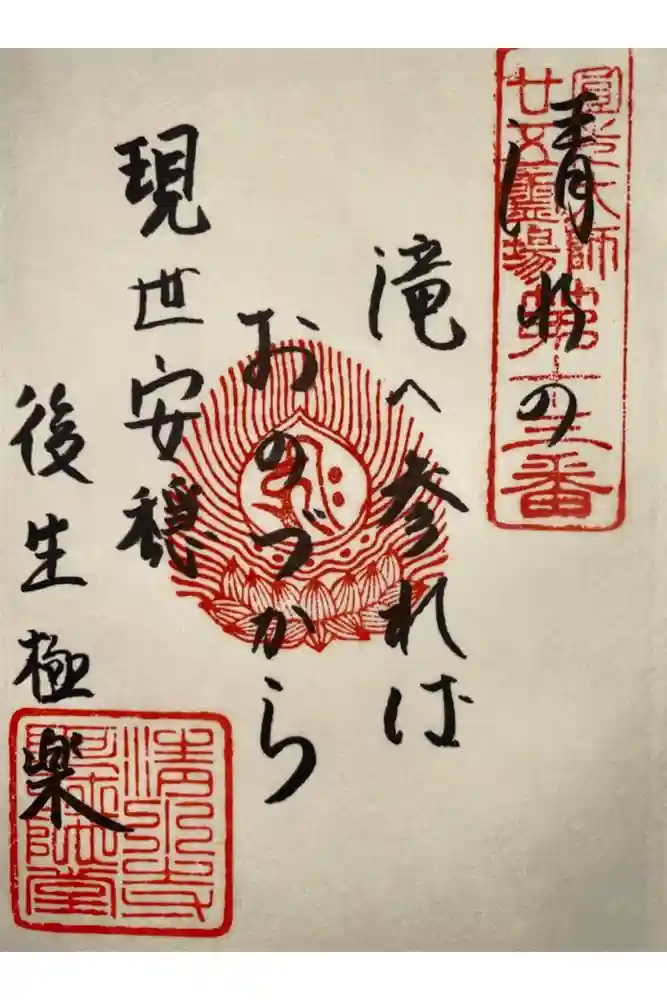 清水の
滝へ参れば
おのづから
現世安穏
後生極楽
圓光大師
廿五霊場第十三番
清水寺
阿弥陀堂